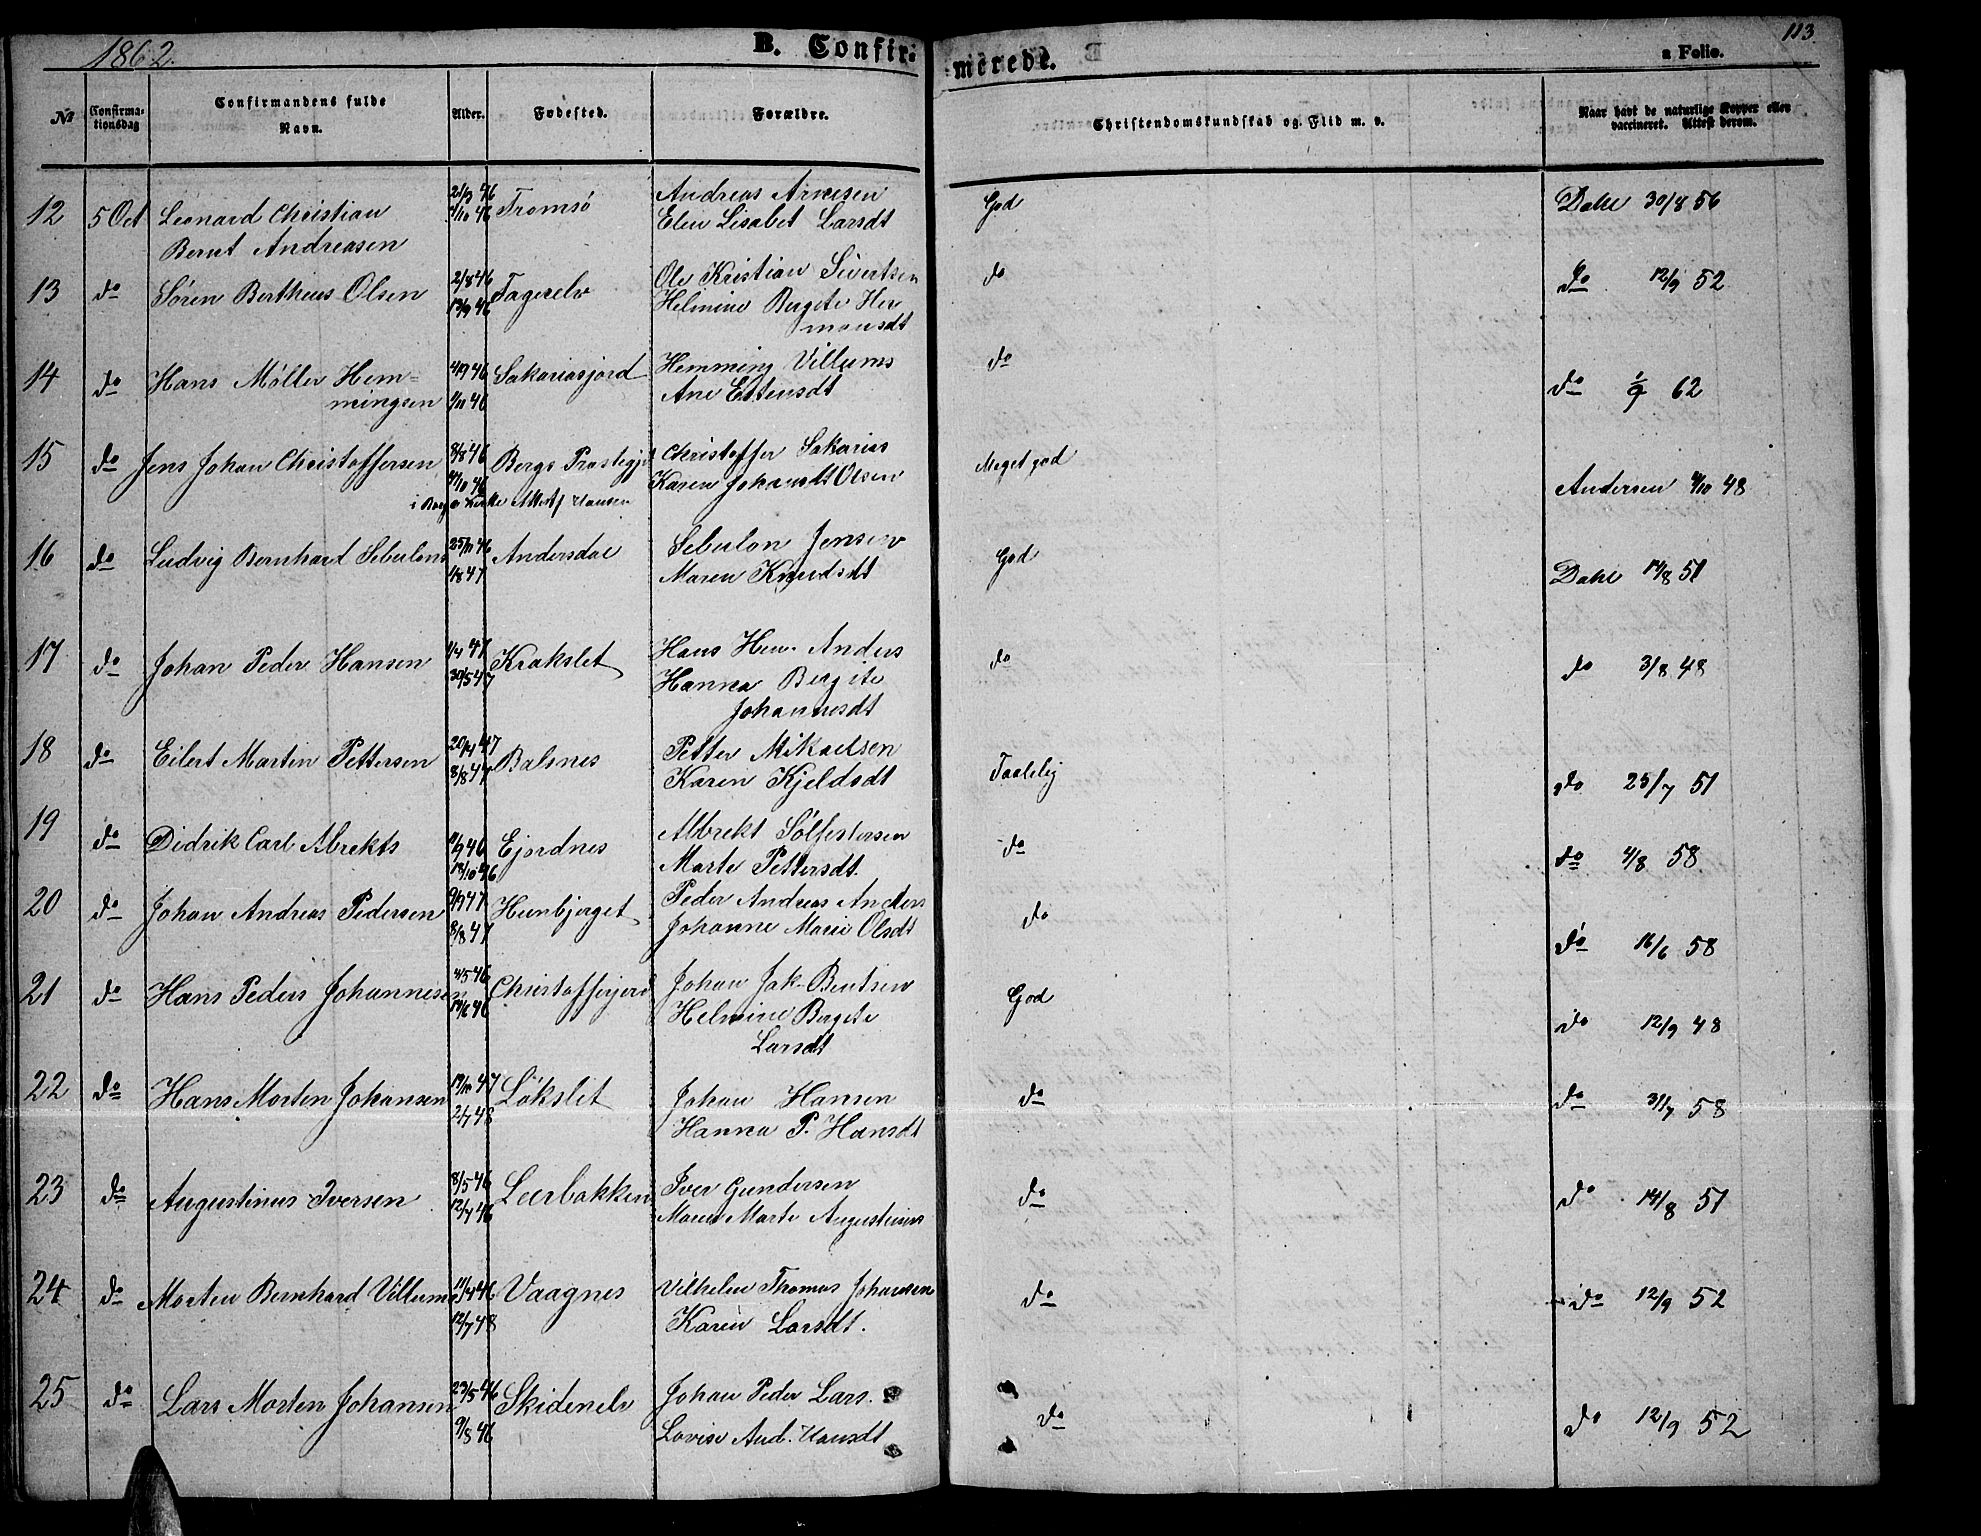 1862.
B. Confir-
merede.
a Folio.
113.
No
Confirma-
tionsdag
Confirmandens fulde
Navn.
Alder.
Fødested.
Forældre.
Christendomskundskab og Flid m. v.
Naar havt de naturlige Kopper eller
vaccineret. Attest derom.
12 5 Oct Leonard Christian
Bernt Andreasen
21/3 46
4/10 46
Tromsø
Andreas Arnesen
Elen Lisabet Larsdt
God
Dahl 30/8 56
13 do Søren Bertheus Olsen
2/8 46
13/9 46
Tagerelv
Ole Kristian Sivertsen
Helmine Bergete Her
mansdt
do
do 12/9 52
14 do Hans Møller Hem-
mingsen
4/9 46
1/11 46
Sakariasjord
Hemming Villums
Ane Ettensdt
do
do 1/9 62
15 do Jens Johan Christoffersen
8/8 46
4/10 46
Bergs Prestegjd
i Berg Kirke Attest Hansen
Christoffer Sakarias
Karen Johansdt Olsen
Meget god
Andersen 4/10 48
16 do Ludvig Bernhard Sebulons
25/11 46
1/8 47
Andersdal
Sebulon Jensen
Maren Knudsdt
God
Dahl 14/8 51
17 do Johan Peder Hansen
1/4 47
30/5 47
Krakslet
Hans Hen. Anders
Hanna Bergite
Johannesdt
do
do 3/8 48
18 do Eilert Martin Pettersen
20/4 47
8/8 47
Balsnes
Petter Mikaelsen
Karen Kjeldsdt
Taalelig
do 25/7 51
19 do Didrik Carl Abrekts
11/9 46
18/10 46
Ejordnes
Albrekt Sølfestersen
Marte Pettersdt.
do
do 4/8 58
20 do Johan Andreas Pedersen
9/7 47
8/8 47
Hunbjerget
Peder Andreas Anders
Johanne Marie Olsdt
do
do 16/6 58
21 do Hans Peders Johannesen
4/5 46
14/6 46
Christofferjord
Johan Jak. Bentsen
Helmine Bergete
Larsdt
God
do 12/9 48
22 do Hans Morten Johansen
19/10 47
2/7 48
Løkslet
Johan Hansen
Hanna P. Hansdt
do
do 31/7 58
23 do Augustinus Iversen
8/5 46
12/7 46
Leerbakken
Iver Gundersen
Maren Marte Augustinus
do
do 14/8 51
24 do Morten Bernhard Villums
11/4 46
12/7 48
Vaagnes
Vilhelm Thomas Johansen
Karen Larsdt.
do
do 12/9 52
25 do Lars Morten Johansen
23/5 46
9/8 46
Skidenelv
Johan Peder Lars.
Lovise And. Hansdt
do
do 12/9 52